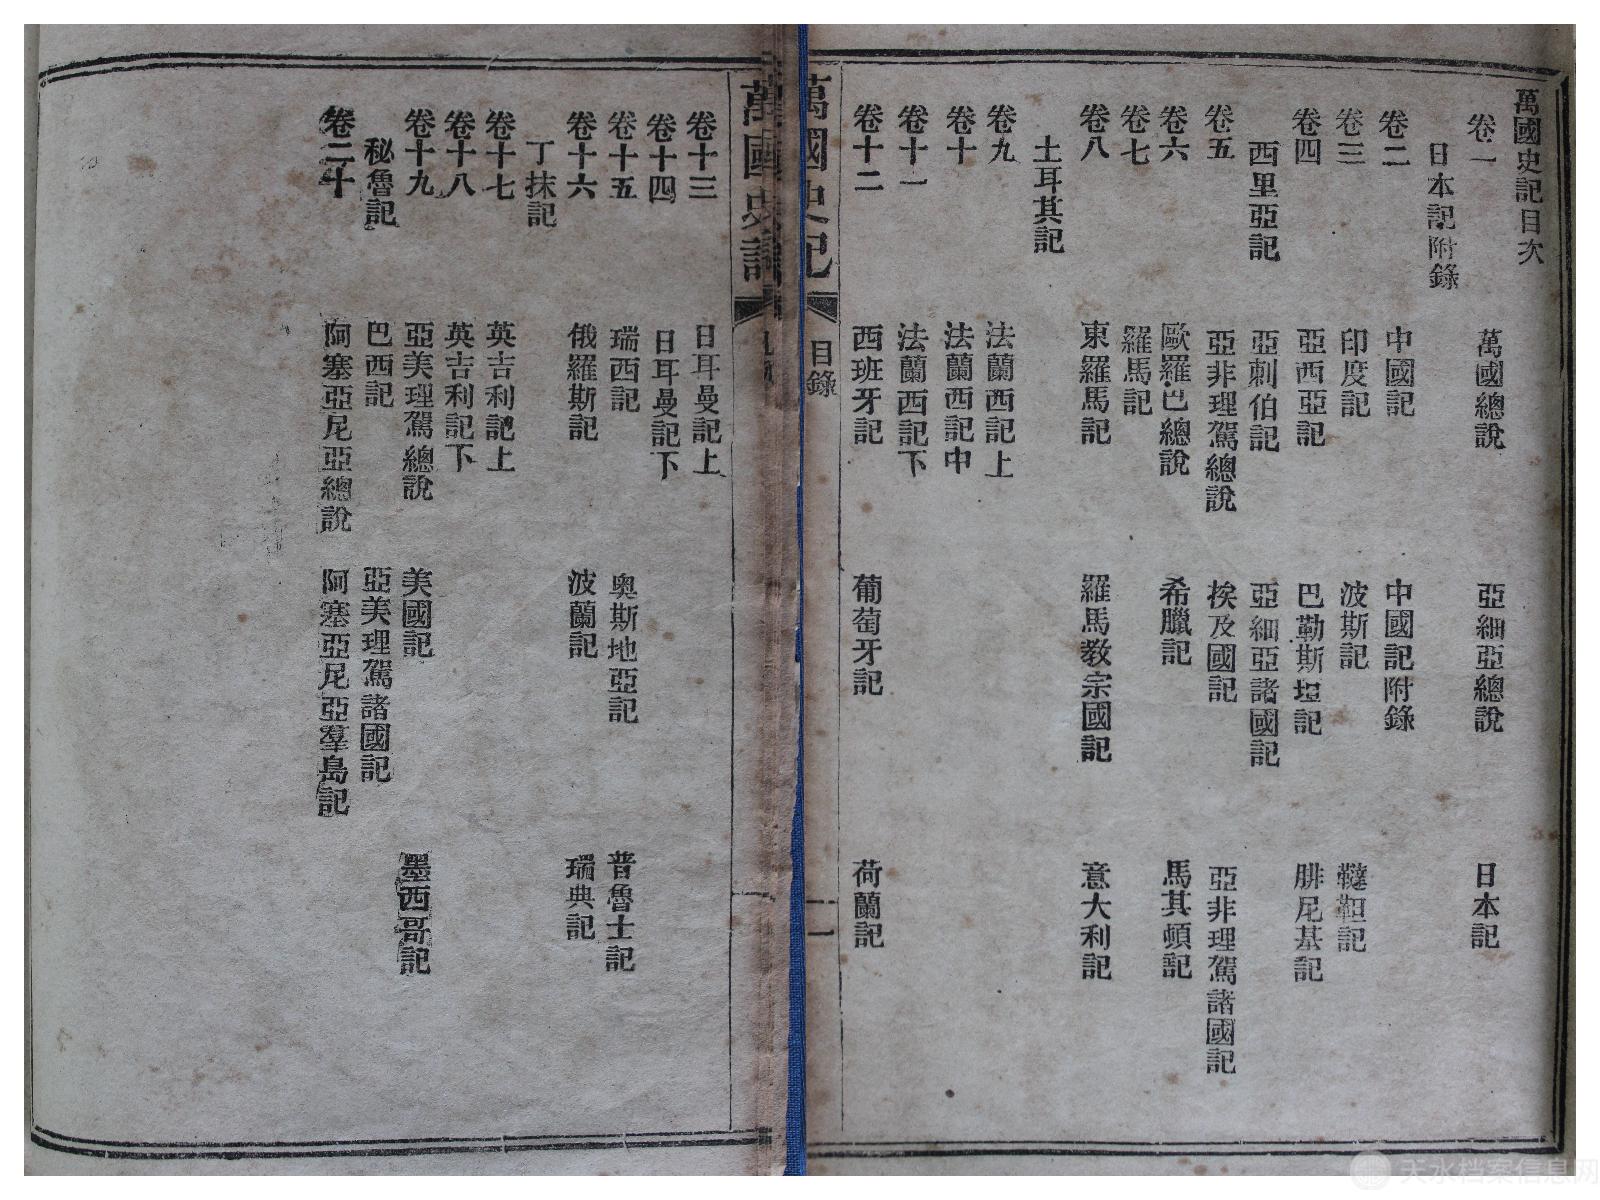 萬國史記目次
卷一 萬國總說 亞細亞總說 日本記
日本記附錄
卷二 中國記 中國記附錄
卷三 印度記 波斯記 韃靼記
卷四 亞西亞記 巴勒斯坦記 腓尼基記
西里亞記 亞剌伯記 亞細亞諸國記
卷五 亞非理駕總說 挨及國記 亞非理駕諸國記
卷六 歐羅巴總說 希臘記 馬其頓記
卷七 羅馬記
卷八 東羅馬記 羅馬教宗國記 意大利記
土耳其記
卷九 法蘭西記上
卷十 法蘭西記中
卷十一 法蘭西記下
卷十二 西班牙記 葡萄牙記 荷蘭記
萬國史記 目錄 一
萬國史記
卷十三 日耳曼記上
卷十四 日耳曼記下
卷十五 瑞西記 奧斯地亞記 普魯士記
卷十六 俄羅斯記 波蘭記 瑞典記
丁抹記
卷十七 英吉利記上
卷十八 英吉利記下
卷十九 亞美理駕總說 美國記 墨西哥記
秘魯記 巴西記 亞美理駕諸國記
卷二十 阿塞亞尼亞總說 阿塞亞尼亞羣島記
天水档案信息网